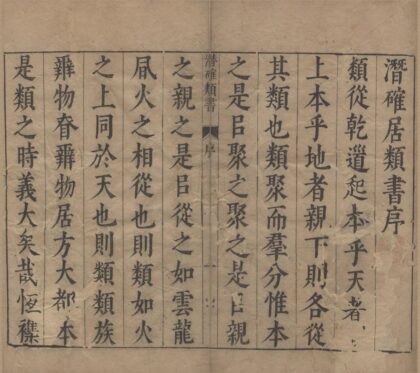 潛確居類書序
類從乾起本乎天者
上本乎地者親下則各從
其類也類聚而羣分惟本
之是㠯聚之聚之是㠯親
潛確類書 序 一
之親之是㠯從之如雲龍
凬火之相從也則類如火
之上同於天也則類類族
辨物眘辨物居方大都本
是類之時義大矣哉恆襍